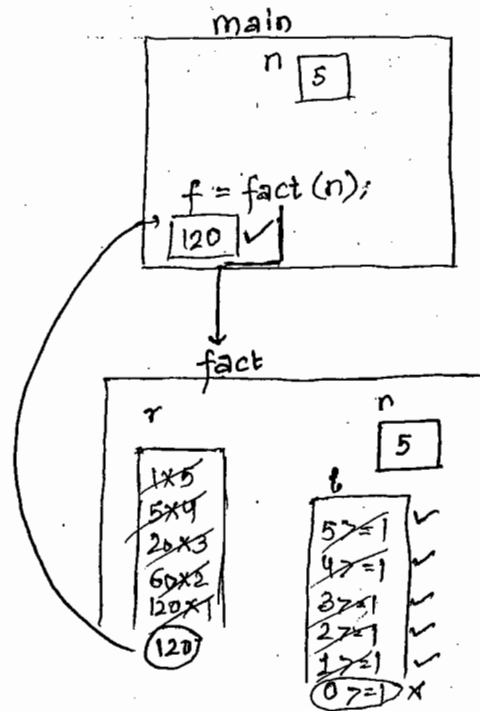 main
n
5
f = fact(n);
120 ✓
fact
r
n
5
1×5
5×4
20×3
60×2
120×1
120
5>=1 ✓
4>=1 ✓
3>=1 ✓
2>=1 ✓
1>=1 ✓
0>=1 ×